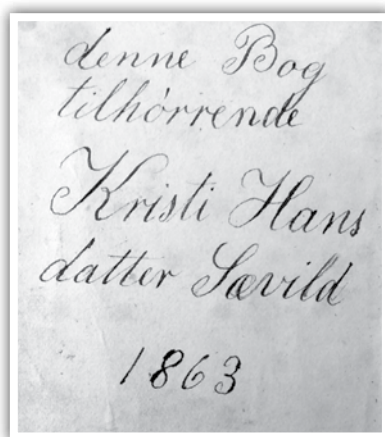 denne Bog
tilhórrende
Kristi Hans
datter Sævild
1863